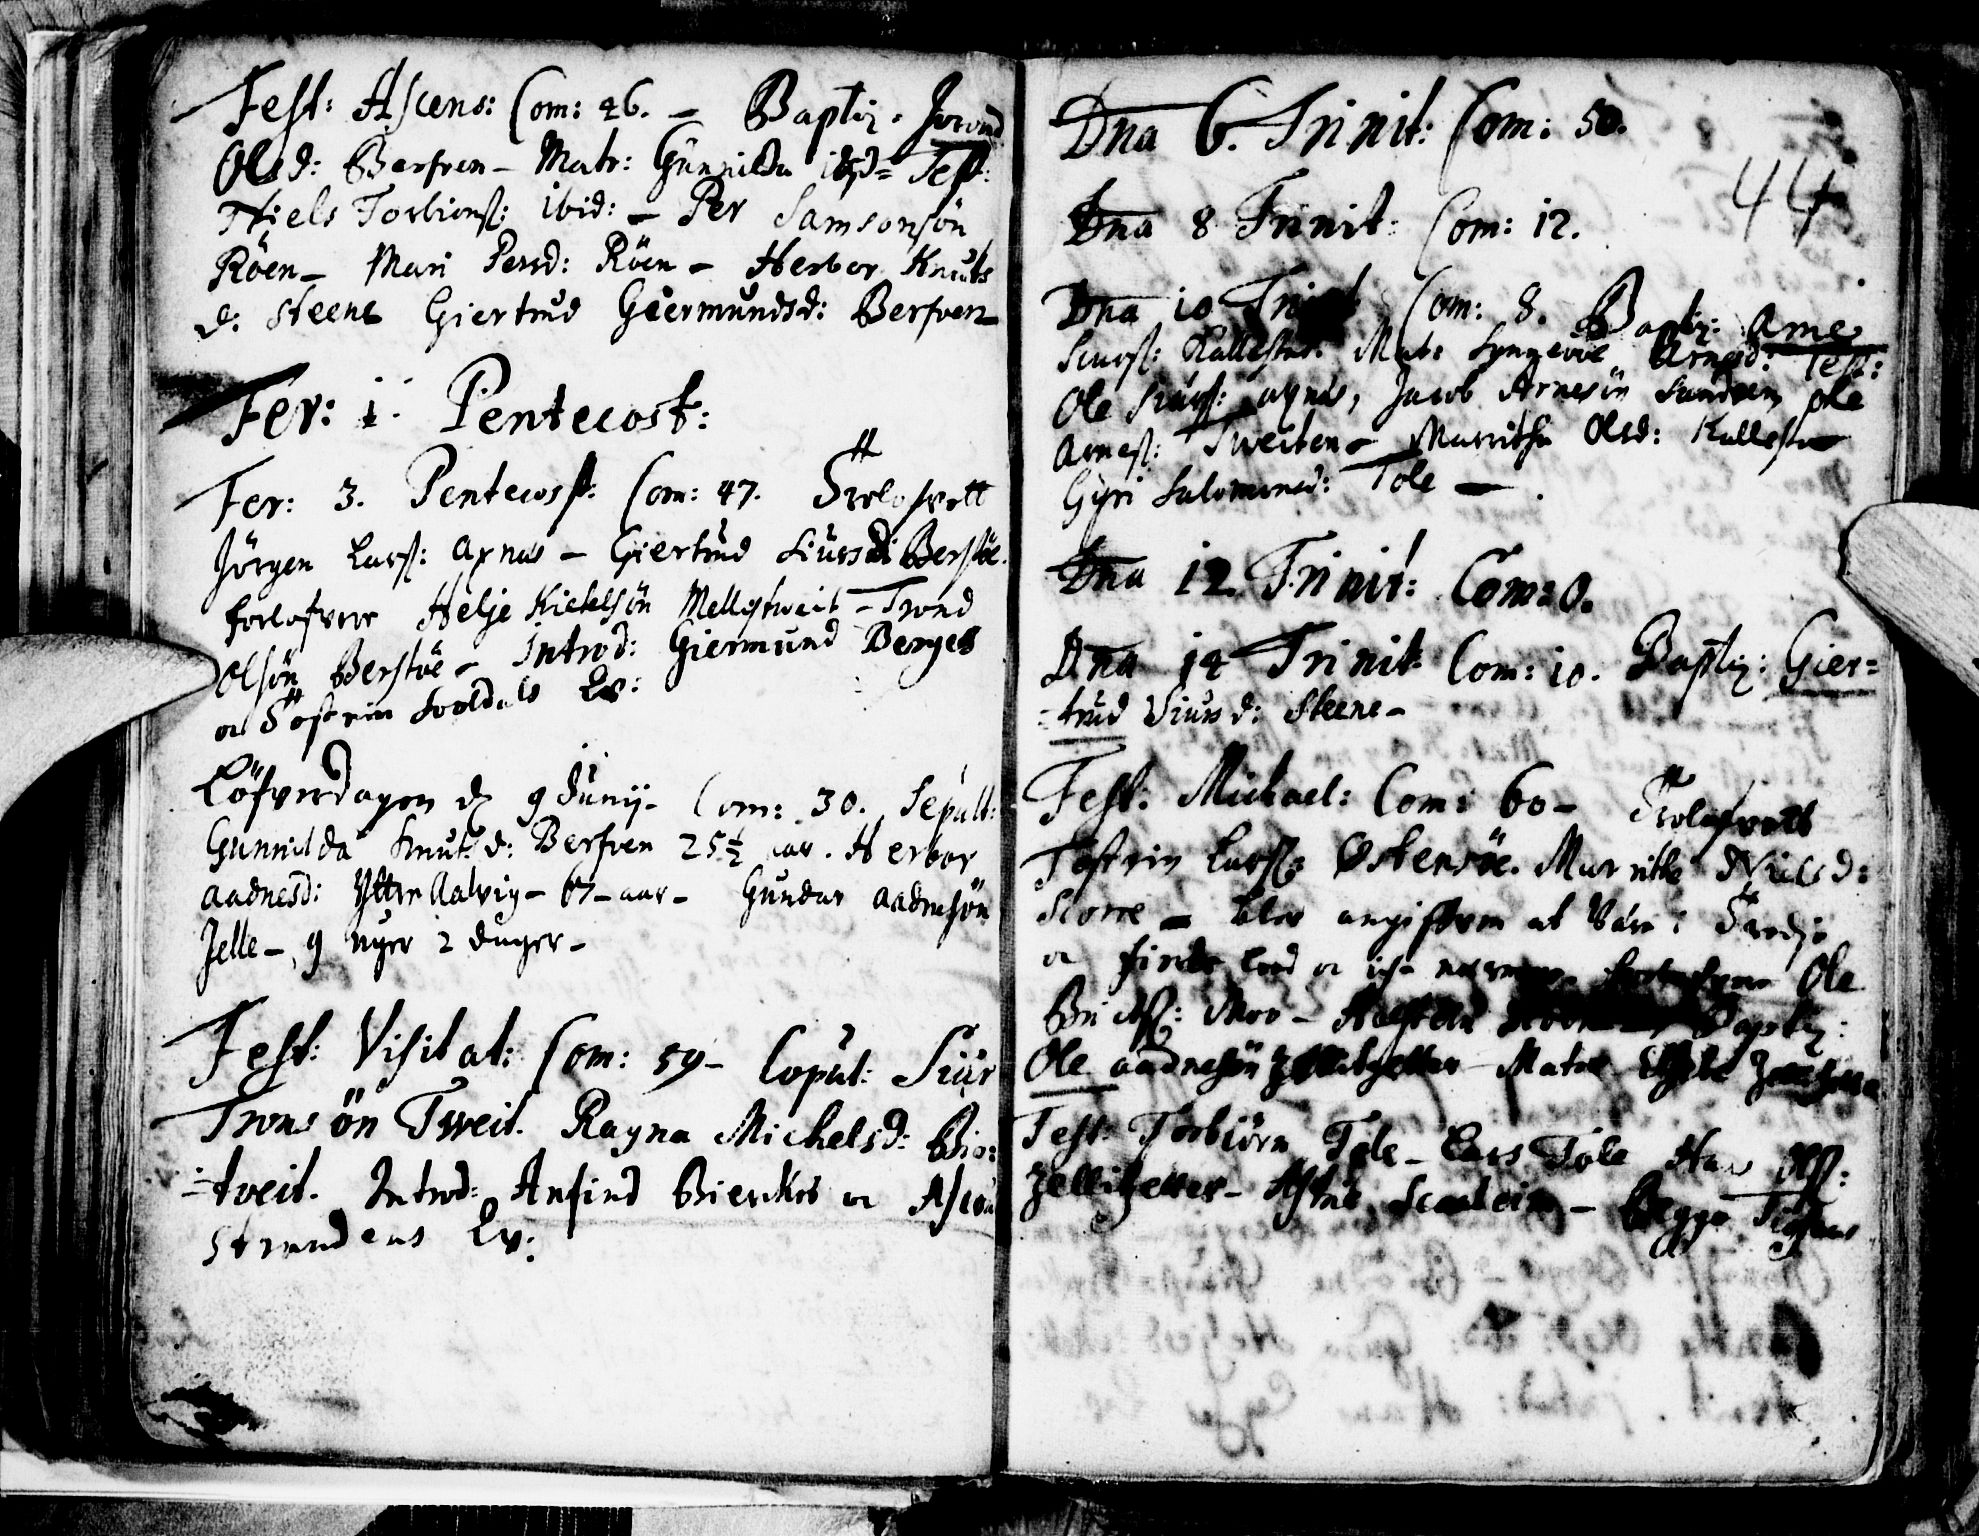 Fest: Ascens: Com: 46. – Baptiz. Jorond
Olsd: Berfven – Matr: Gunnilda ibd= Test:
Niels Torbionss: ibid: – Per Samsonsön
Röen – Mari Persd: Röen – Herbor Knuts
d: Steene Giertrud Geermundsd: Berfven
Fer: 1. Pentecost:
Fer: 3. Pentecost: Com: 47. Trolofvett
Jörgen Larss: Axnes – Giertrud Siursd: Berstöe.
forlofvere Helje Kietelsön Mellstweit – Trond
Olsön Berstöe – Introd: Giermund Berges
oc Tostein Soldals Ex:
Löfverdagen d. 9 Junij – Com: 30. Sepult:
Gunnilda Knutsd: Berfven 25½ aar. Herbor
Aadnesd: Yttre Aalvig – 67 – aar – Gundar Aadnesön
Jelle –, 9 uger 2 dager –
Fest: Visitat: Com: 59 – Coput: Siur
Tronsön Tweit. Ragna Michelsd: Bio=
=tveit. Introd: Anfind Bierckes oc
Strandens Ex:
Dna 6. Trinit: Com: 50.
44
Dna 8 Trinit: Com: 12.
Dna 10 Trinit Com: 8. Baptiz: Arne
Siurss: Kallestad. Matr: Synnevve Arnesd: Test:
Ole Siurss: Axnes, Jacob Arnesön Sandven, Ole
Arness: Tweiten – Marritha Olsd: Kallestad
Gyri Salomonsd: Tole –
Dna 12. Trinit: Com: 0.
Dna 14 Trinit: Com: 10. Baptiz: Gier=
=trud Siursd: Steene –
Fest: Michael: Com: 60 – Trolofvett
Tostein Larss: Østensöe. Marritte Nielsd:
Skorre – blev angifven at være i Tredje
oc fierde Leed oc icke nermere. Forlofvere Ole
Moe – Baptiz:
Ole Aadnesön – Mater
Test: Torbiörn Tole – Lars Tole Olss:
– Begge Tostens